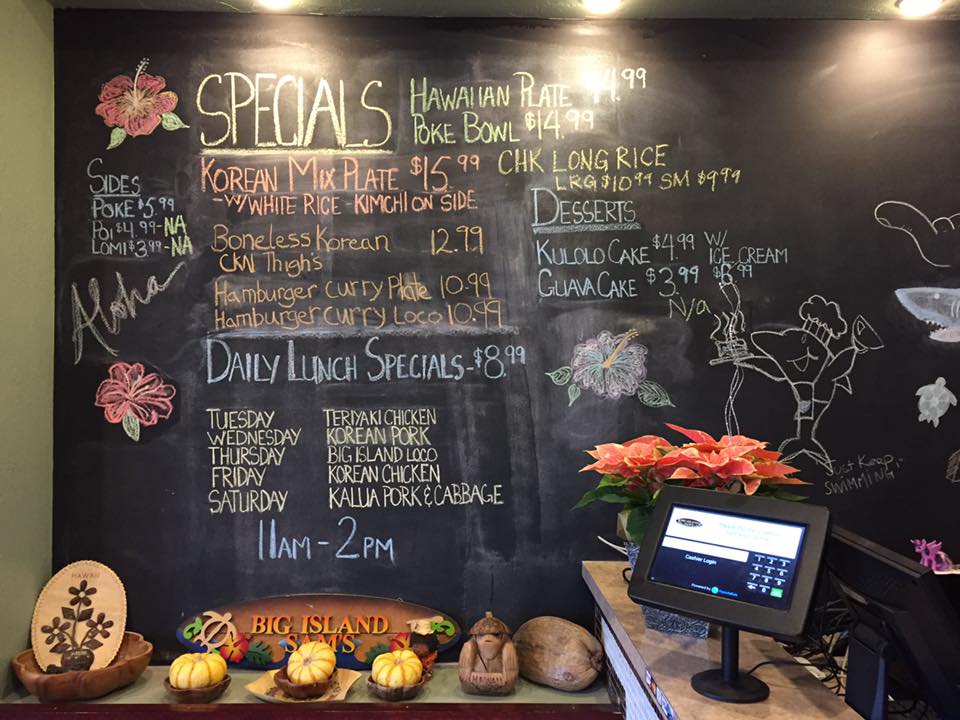 SPECIALS
HAWAIIAN PLATE $14.99
POKE BOWL $14.99
KOREAN MIX PLATE $15.99
-W/WHITE RICE - KIMCHI ON SIDE
CHK LONG RICE
LRG $10.99 SM $9.99
BONELESS KOREAN 12.99
CKN THIGH'S
HAMBURGER CURRY PLATE 10.99
HAMBURGER CURRY LOCO 10.99
SIDES
POKE $5.99
POI $4.99-NA
LOMI $3.99-NA
Aloha
DESSERTS
KULOLO CAKE $4.99 W/ ICE CREAM
GUAVA CAKE $3.99 $6.99
N/a
DAILY LUNCH SPECIALS-$8.99
TUESDAY TERIYAKI CHICKEN
WEDNESDAY KOREAN PORK
THURSDAY BIG ISLAND LOCO
FRIDAY KOREAN CHICKEN
SATURDAY KALUA PORK & CABBAGE
11AM - 2PM
Just Keep
SWIMMING
HAWAII
BIG ISLAND
SAM'S
HAWAII
Cashier Login
Powered by